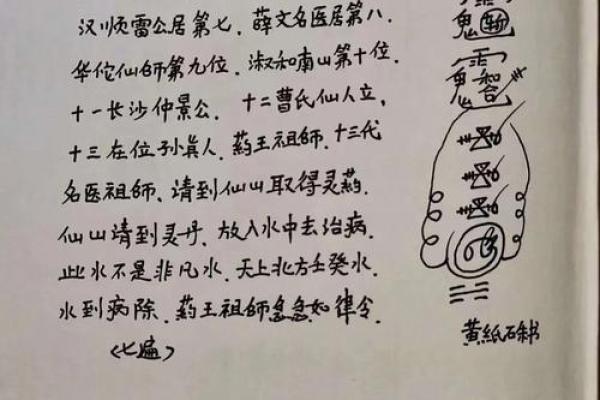 汉顺雷公居第七.薛文名医居第八.
华佗仙師第九位.淑和南山第十位.
十一长沙仲景公.十二曹氏仙人立,
十三在位孙真人.葯王祖師.十三代
名医祖師.请到仙山取得灵葯.
仙山请到灵丹.放入水中去治病.
此水不是非凡水.天上北方壬癸水.
水到病除.葯王祖師急急如律令.
(七遍)
鬼
鬼
合
黄紙硃书